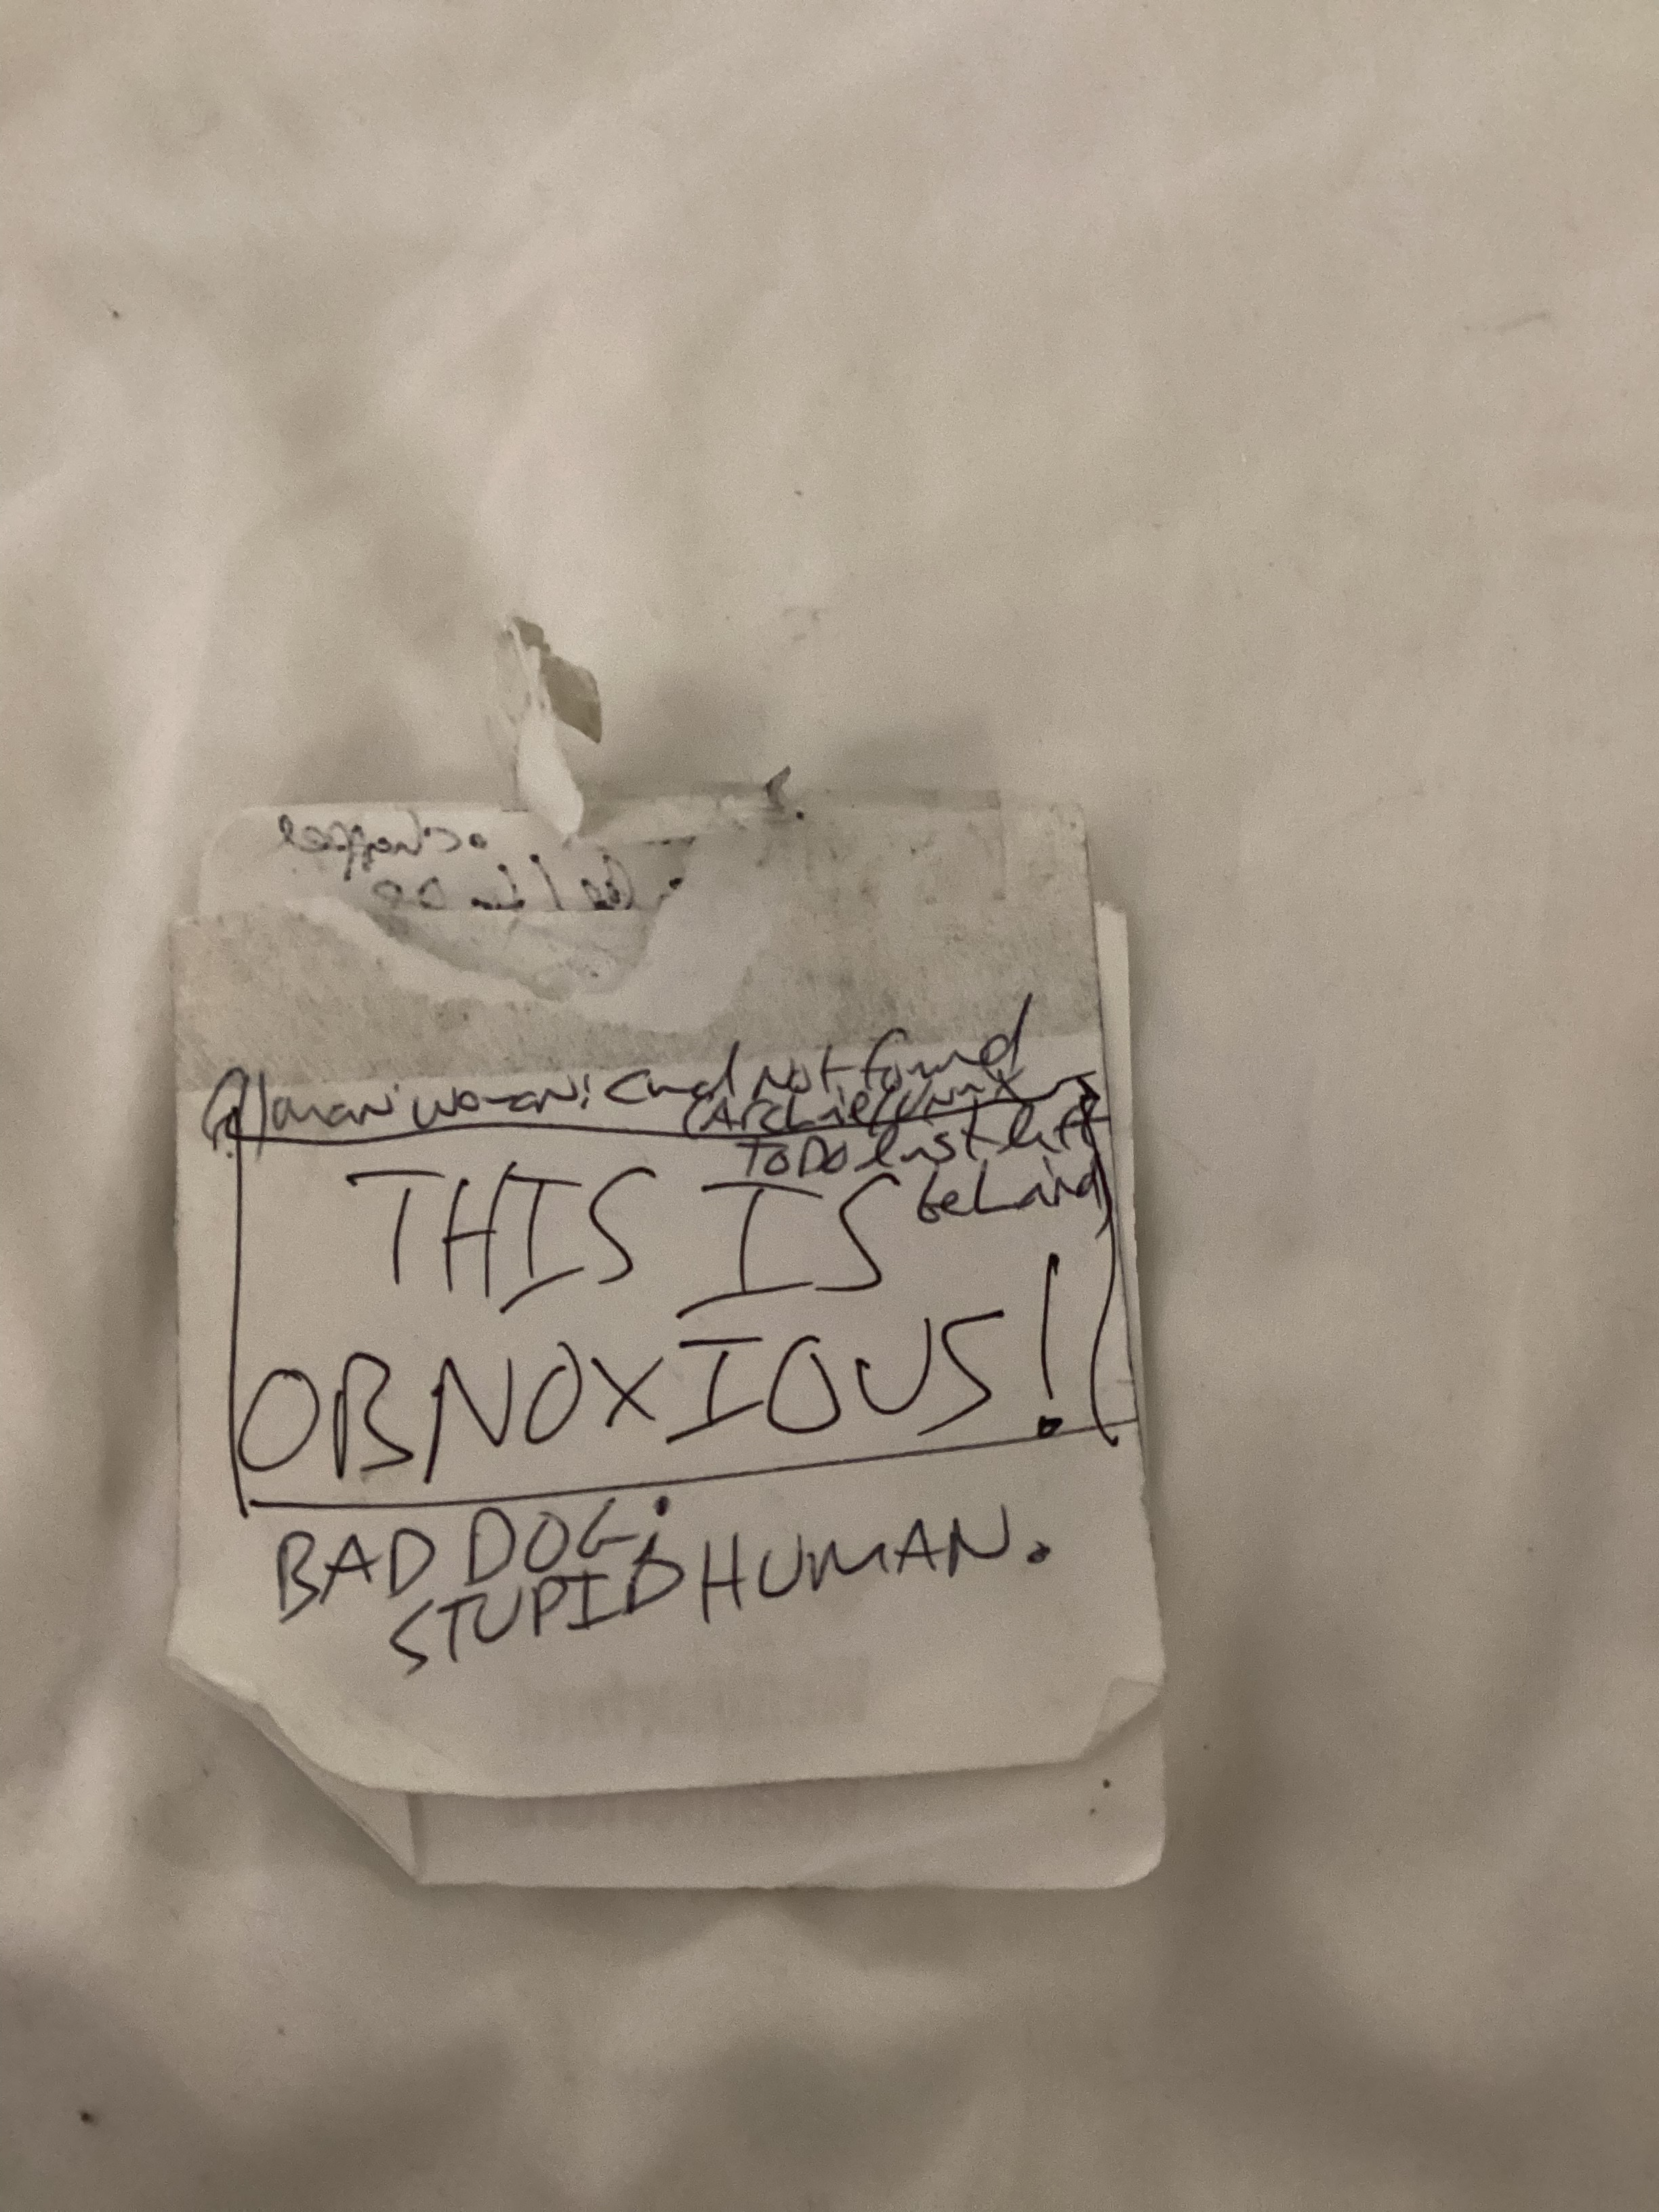 man woman: cmd not found
(Archie/Unix
TODO last left
behind)
THIS IS
OBNOXIOUS!
BAD DOG;
STUPID HUMAN.